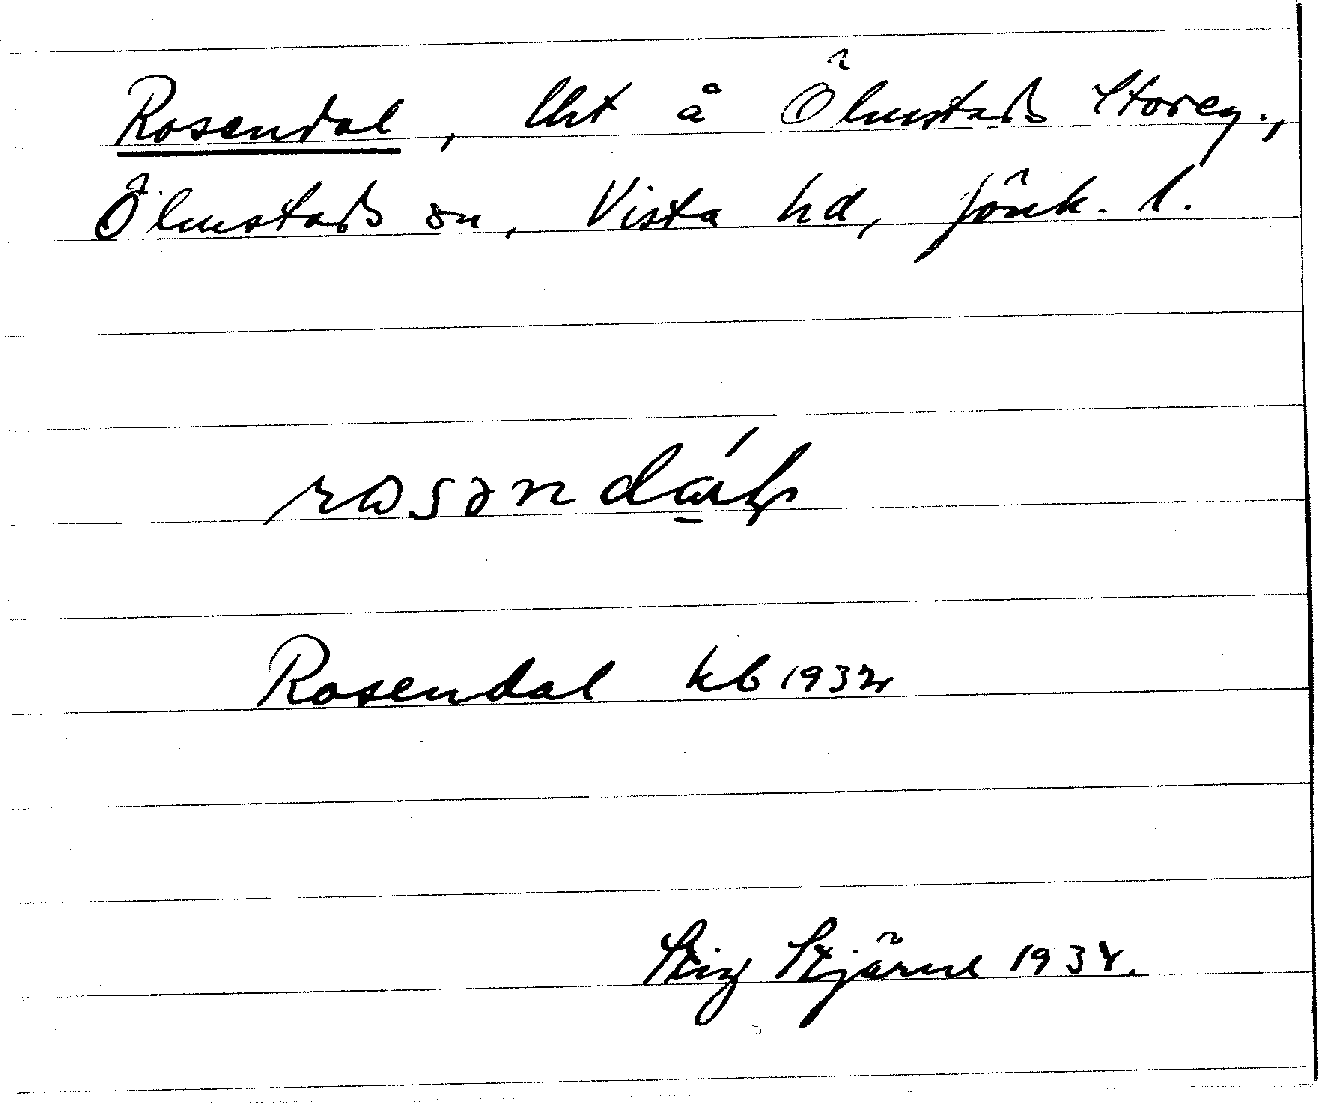 Rosendal, lht å Ölmstads Storeg.,
Ölmstads sn, Vista hd, Jönk. l.
Rosendal kb 1932
Stig Stjärne 1934.